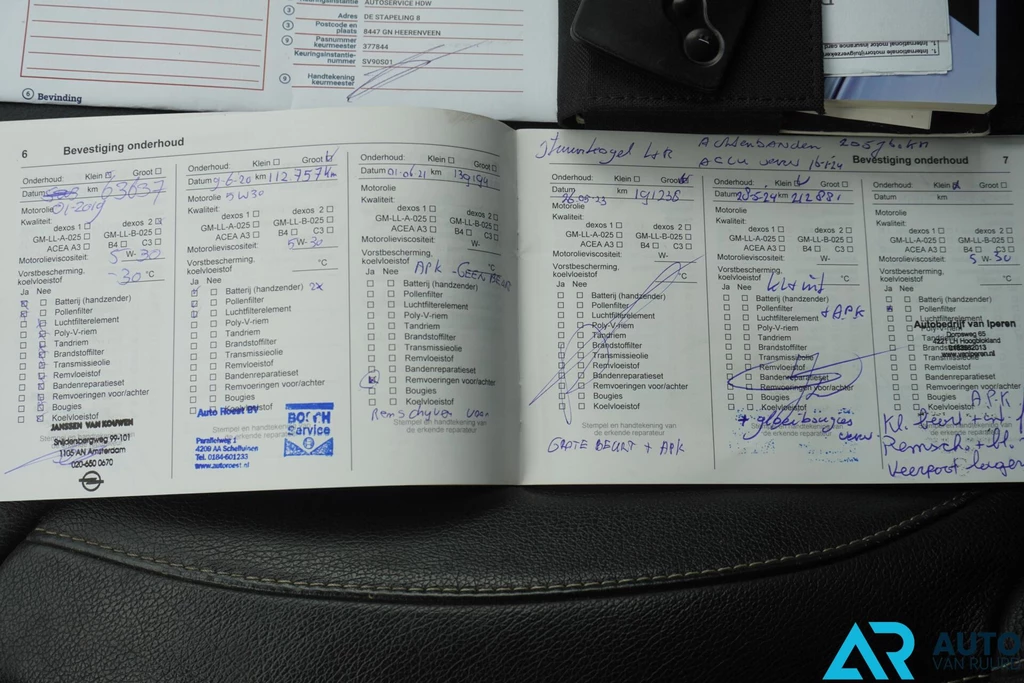 Keuringsinstantie AUTOSERVICE HDW
③ Adres DE STAPELING 8
③ Postcode en plaats 8447 GN HEERENVEEN
⑨ Pasnummer keurmeester 377844
Keuringsinstantie-nummer SV90S01
⑨ Handtekening keurmeester
⑥ Bevinding
1. International motor insurance card
6 Bevestiging onderhoud
Onderhoud: Klein Groot
Datum km 63637
Motorolie 01-2019
Kwaliteit:
dexos 1 dexos 2
GM-LL-A-025 GM-LL-B-025
ACEA A3 B4 C3
Motorolieviscositeit: 5 W-30
Vorstbescherming, koelvloeistof -30 °C
Ja Nee
Batterij (handzender)
Pollenfilter
Luchtfilterelement
Poly-V-riem
Tandriem
Brandstoffilter
Transmissieolie
Remvloeistof
Bandenreparatieset
Remvoeringen voor/achter
Bougies
Koelvloeistof
JANSSEN VAN KOUWEN
Snijdenbergweg 99-101
1105 AN Amsterdam
020-650 0670
Onderhoud: Klein Groot
Datum 9-6-20 km 112757 km
Motorolie 5W30
Kwaliteit:
dexos 1 dexos 2
GM-LL-A-025 GM-LL-B-025
ACEA A3 B4 C3
Motorolieviscositeit: 5W-30
Vorstbescherming, koelvloeistof °C
Ja Nee
Batterij (handzender) 2x
Pollenfilter
Luchtfilterelement
Poly-V-riem
Tandriem
Brandstoffilter
Transmissieolie
Remvloeistof
Bandenreparatieset
Remvoeringen voor/achter
Bougies
Koelvloeistof
Stempel en handtekening van de erkende reparateur
Auto Roest BV
4209 AA Schelluinen
Tel. 0184-601233
www.autoroest.nl
BOSCH
Service
Onderhoud: Klein Groot
Datum 01-06-21 km 139194
Motorolie
Kwaliteit:
dexos 1 dexos 2
GM-LL-A-025 GM-LL-B-025
ACEA A3 B4 C3
Motorolieviscositeit: W-
Vorstbescherming, koelvloeistof °C
APK - GEEN BEURT
Ja Nee
Batterij (handzender)
Pollenfilter
Luchtfilterelement
Poly-V-riem
Tandriem
Brandstoffilter
Transmissieolie
Remvloeistof
Bandenreparatieset
Remvoeringen voor/achter
Bougies
Koelvloeistof
Remschijven voor
Stempel en handtekening van de erkende reparateur
Stuurkogel L+R
Achterbanden 205762 km
Accu verv 16-1-24
Bevestiging onderhoud 7
Onderhoud: Klein Groot
Datum km 191238
26-05-23
Motorolie
Kwaliteit:
dexos 1 dexos 2
GM-LL-A-025 GM-LL-B-025
ACEA A3 B4 C3
Motorolieviscositeit: W-
Vorstbescherming, koelvloeistof °C
Ja Nee
Batterij (handzender)
Pollenfilter
Luchtfilterelement
Poly-V-riem
Tandriem
Brandstoffilter
Transmissieolie
Remvloeistof
Bandenreparatieset
Remvoeringen voor/achter
Bougies
Koelvloeistof
Stempel en handtekening van de erkende reparateur
GROTE BEURT + APK
Onderhoud: Klein Groot
Datum 28-5-24 km 212881
Motorolie
Kwaliteit:
dexos 1 dexos 2
GM-LL-A-025 GM-LL-B-025
ACEA A3 B4 C3
Motorolieviscositeit: W-
Vorstbescherming, koelvloeistof °C
Ja Nee
Batterij (handzender)
Pollenfilter
Luchtfilterelement + APK
Poly-V-riem
Tandriem
Brandstoffilter
Transmissieolie
Remvloeistof
Bandenreparatieset
Remvoeringen voor/achter
Bougies
Koelvloeistof
+ gloeibougies verv
Onderhoud: Klein Groot
Datum km
Motorolie
Kwaliteit:
dexos 1 dexos 2
GM-LL-A-025 GM-LL-B-025
ACEA A3 B4 C3
Motorolieviscositeit: 5 W-30
Vorstbescherming, koelvloeistof °C
Ja Nee
Batterij (handzender)
Pollenfilter
Luchtfilterelement
Autobedrijf van Iperen
Dorpsweg 65
4221 LH Hoogblokland
www.vaniperen.nl
Transmissieolie
Remvloeistof
Bandenreparatieset
Remvoeringen voor/achter
Bougies
Koelvloeistof
APK
Kl. beurt
Remsch. + bl.
Veerpoot lager
AR AUTO
VAN RUURD